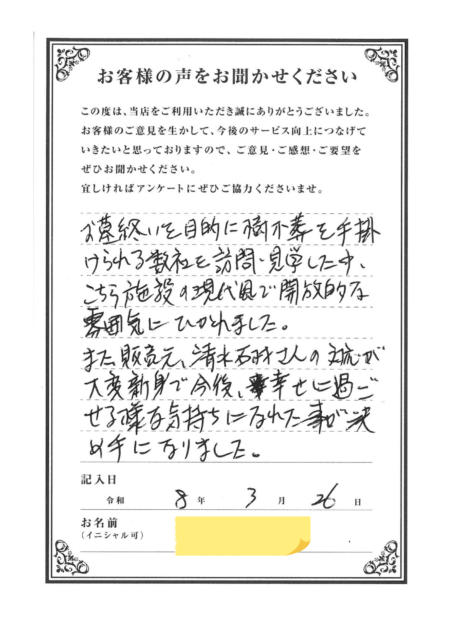 お客様の声をお聞かせください
この度は、当店をご利用いただき誠にありがとうございました。
お客様のご意見を生かして、今後のサービス向上につなげて
いきたいと思っておりますので、ご意見・ご感想・ご要望を
ぜひお聞かせください。
宜しければアンケートにぜひご協力くださいませ。
お墓終いを目的に樹木葬を手掛
けられる数社を訪問・見学した中、
こちら施設の現代風で開放的な
雰囲気にひかれました。
また販売元、清水石材さんの対応が
大変親身で今後、幸せに過ご
せる様な気持ちになれた事が決
め手になりました。
記入日
令和 8年 3月 26日
お名前
(イニシャル可)